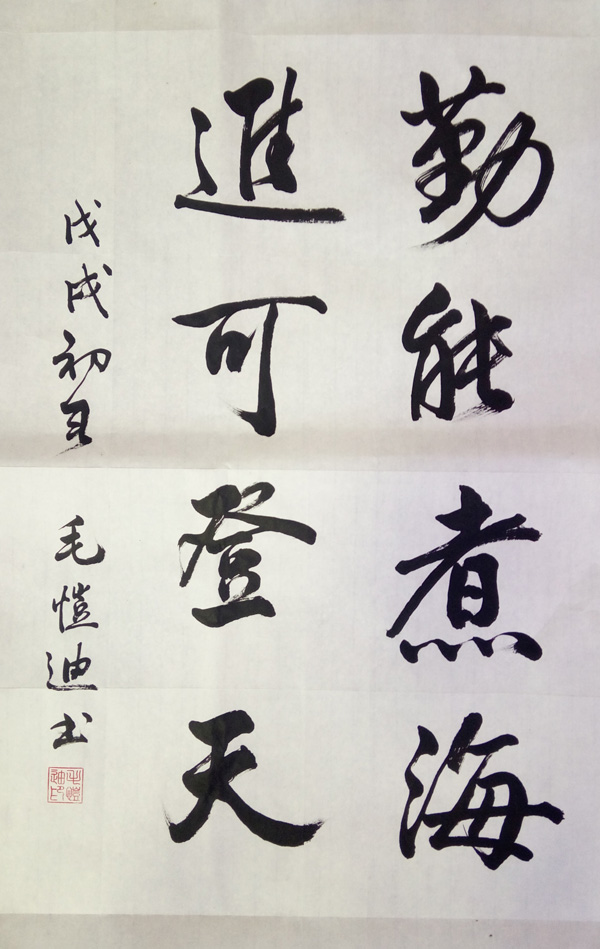 勤能煮海
進可登天
戊戌初夏 毛愷迪书
毛愷
迪印